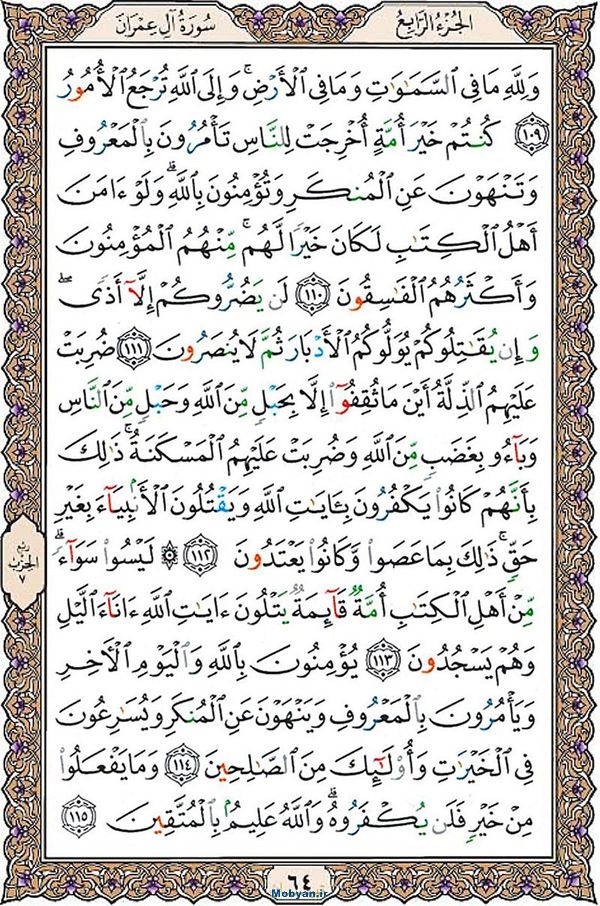 الجزء الرابع
سورة آل عمران
وَلِلَّهِ مَا فِي ٱلسَّمَٰوَٰتِ وَمَا فِي ٱلْأَرْضِۚ وَإِلَى ٱللَّهِ تُرْجَعُ ٱلْأُمُورُ
١٠٩ كُنتُمْ خَيْرَ أُمَّةٍ أُخْرِجَتْ لِلنَّاسِ تَأْمُرُونَ بِٱلْمَعْرُوفِ
وَتَنْهَوْنَ عَنِ ٱلْمُنكَرِ وَتُؤْمِنُونَ بِٱللَّهِۗ وَلَوْ ءَامَنَ
أَهْلُ ٱلْكِتَٰبِ لَكَانَ خَيْرًا لَّهُمۚ مِّنْهُمُ ٱلْمُؤْمِنُونَ
وَأَكْثَرُهُمُ ٱلْفَٰسِقُونَ ١١٠ لَن يَضُرُّوكُمْ إِلَّآ أَذًىۖ
وَإِن يُقَٰتِلُوكُمْ يُوَلُّوكُمُ ٱلْأَدْبَارَ ثُمَّ لَا يُنصَرُونَ ١١١ ضُرِبَتْ
عَلَيْهِمُ ٱلذِّلَّةُ أَيْنَ مَا ثُقِفُوٓا۟ إِلَّا بِحَبْلٍ مِّنَ ٱللَّهِ وَحَبْلٍ مِّنَ ٱلنَّاسِ
وَبَآءُو بِغَضَبٍ مِّنَ ٱللَّهِ وَضُرِبَتْ عَلَيْهِمُ ٱلْمَسْكَنَةُۚ ذَٰلِكَ
بِأَنَّهُمْ كَانُوا۟ يَكْفُرُونَ بِـَٔايَٰتِ ٱللَّهِ وَيَقْتُلُونَ ٱلْأَنۢبِيَآءَ بِغَيْرِ
حَقٍّۚ ذَٰلِكَ بِمَا عَصَوا۟ وَّكَانُوا۟ يَعْتَدُونَ ١١٢ ۞ لَيْسُوا۟ سَوَآءًۗ
مِّنْ أَهْلِ ٱلْكِتَٰبِ أُمَّةٌ قَآئِمَةٌ يَتْلُونَ ءَايَٰتِ ٱللَّهِ ءَانَآءَ ٱلَّيْلِ
وَهُمْ يَسْجُدُونَ ١١٣ يُؤْمِنُونَ بِٱللَّهِ وَٱلْيَوْمِ ٱلْأَخِرِ
وَيَأْمُرُونَ بِٱلْمَعْرُوفِ وَيَنْهَوْنَ عَنِ ٱلْمُنكَرِ وَيُسَٰرِعُونَ
فِي ٱلْخَيْرَٰتِ وَأُو۟لَٰٓئِكَ مِنَ ٱلصَّٰلِحِينَ ١١٤ وَمَا يَفْعَلُوا۟
مِنْ خَيْرٍ فَلَن يُكْفَرُوهُۗ وَٱللَّهُ عَلِيمٌۢ بِٱلْمُتَّقِينَ ١١٥
ربع
الحزب
٧
٦٤
Mobyan.ir